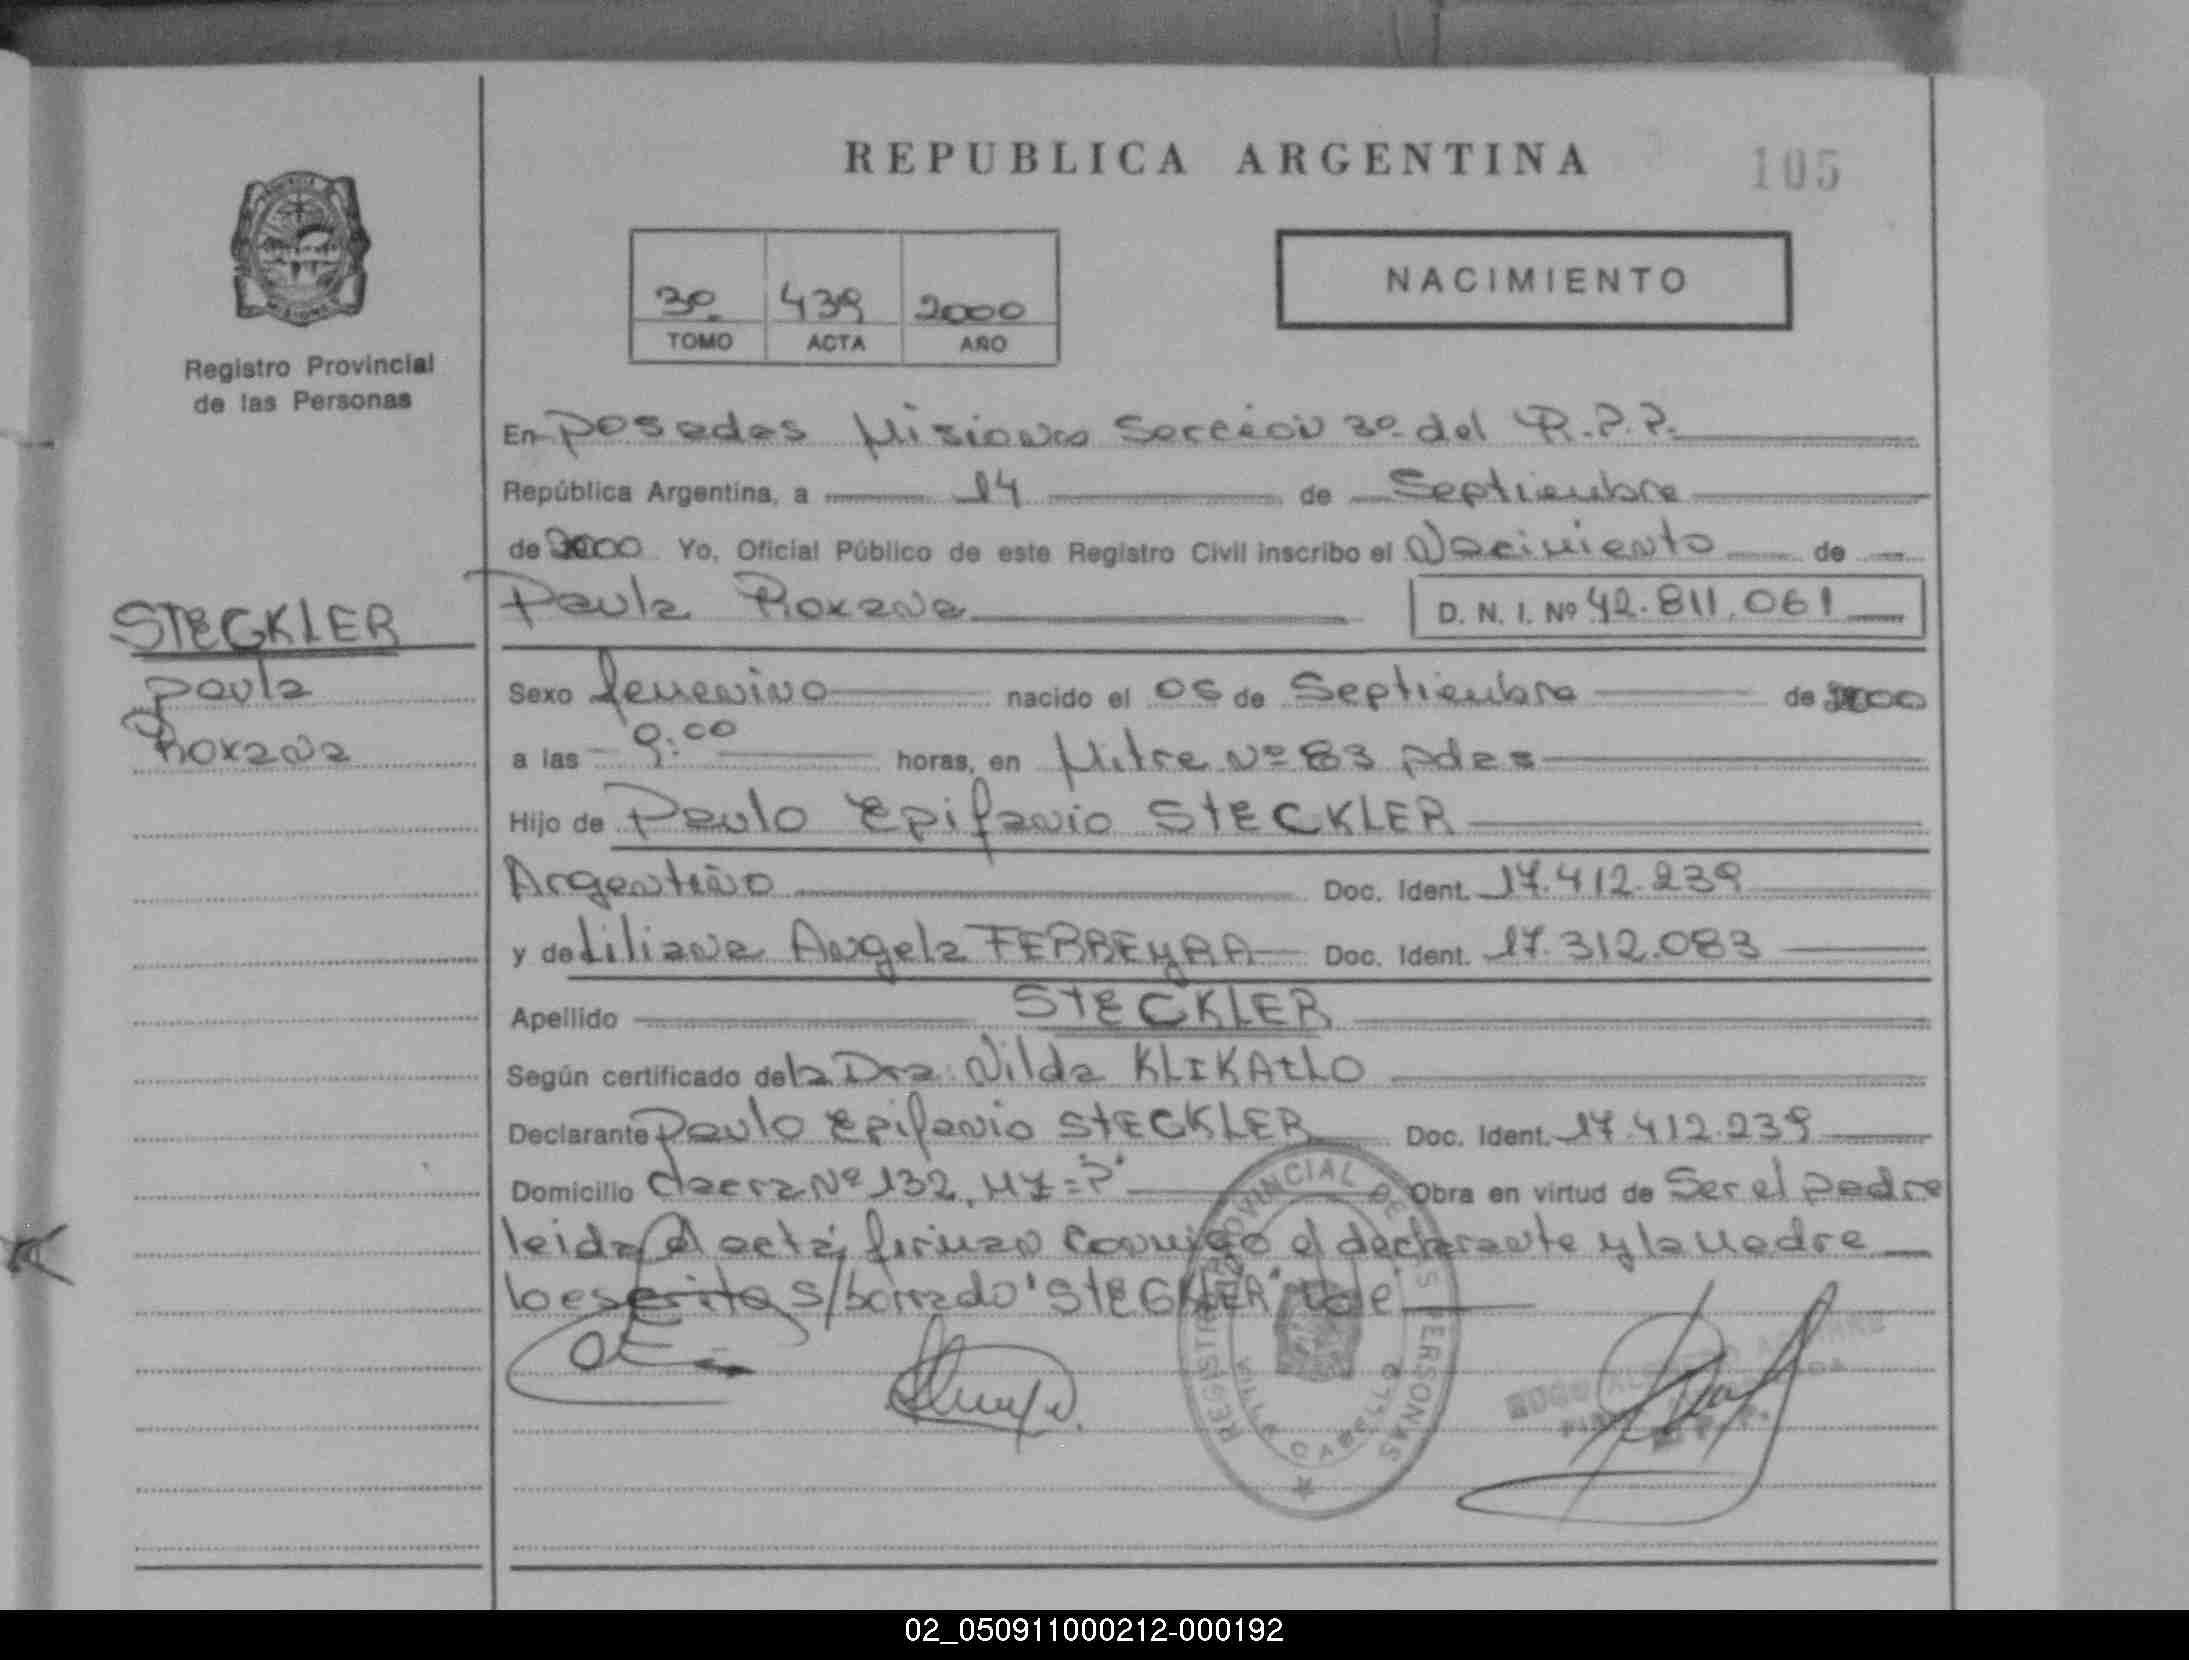 REPUBLICA ARGENTINA
105
Registro Provincial
de las Personas
3º 439 2000
TOMO ACTA AÑO
NACIMIENTO
En Posadas Misiones Sección 3º del R.P.P.
República Argentina, a 14 de Septiembre
de 2000 Yo, Oficial Público de este Registro Civil inscribo el Nacimiento de
Paula Roxana D. N. I. Nº 42.811.061
STECKLER
Paula
Roxana
Sexo femenino nacido el 06 de Septiembre de 2000
a las 9:00 horas, en Mitre Nº 83 pdas
Hijo de Paulo Epifanio STECKLER
Argentino Doc. Ident. 17.412.239
y de Liliana Angela FERREYRA Doc. Ident. 17.312.083
Apellido STECKLER
Según certificado de la Dra. Nilda KLIKAILO
Declarante Paulo Epifanio STECKLER Doc. Ident. 17.412.239
Domicilio chacra Nº 132, Obra en virtud de Ser el padre
leida el acta, firman conmigo el declarante y la Madre
lo escrito s/borrado "STECKLER"
REGISTRO PROVINCIAL DE LAS PERSONAS
VILLA CABELLO
02_050911000212-000192